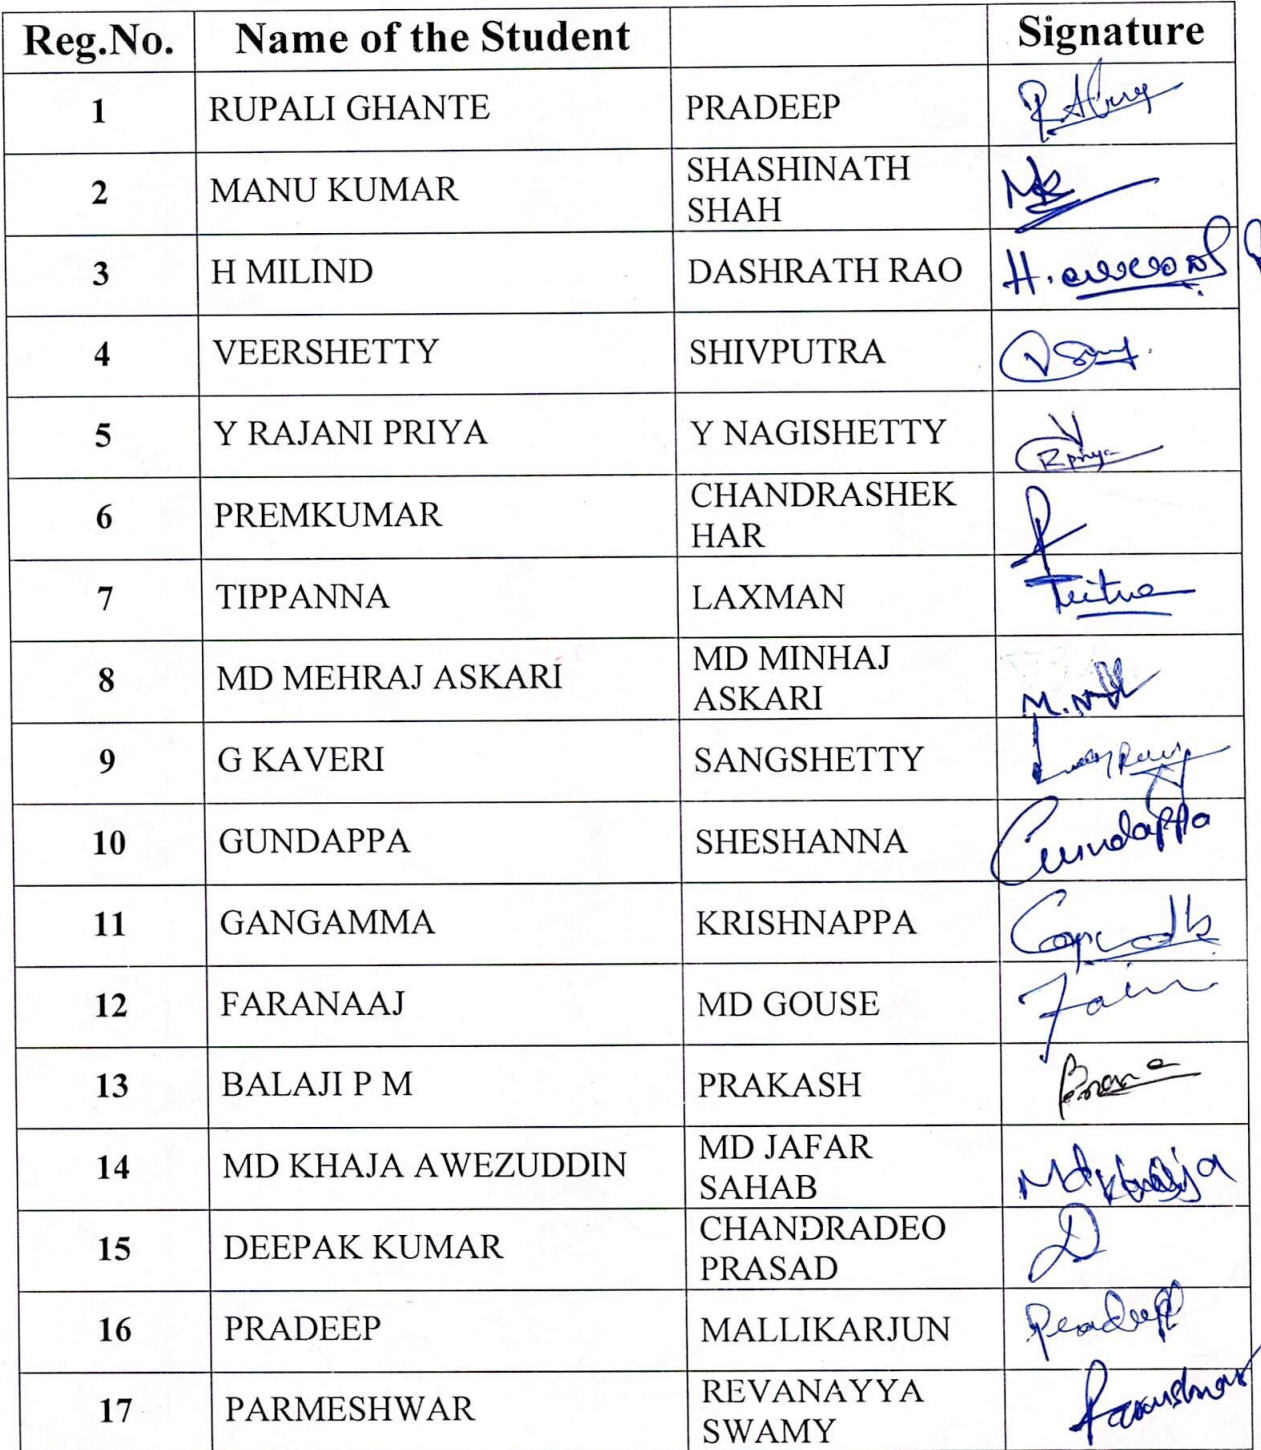 Reg.No. Name of the Student Signature
1 RUPALI GHANTE PRADEEP
2 MANU KUMAR SHASHINATH
SHAH
3 H MILIND DASHRATH RAO H.
4 VEERSHETTY SHIVPUTRA
5 Y RAJANI PRIYA Y NAGISHETTY Rpriya
6 PREMKUMAR CHANDRASHEK
HAR
7 TIPPANNA LAXMAN
8 MD MEHRAJ ASKARI MD MINHAJ
ASKARI
9 G KAVERI SANGSHETTY
10 GUNDAPPA SHESHANNA Gundappa
11 GANGAMMA KRISHNAPPA
12 FARANAAJ MD GOUSE
13 BALAJI P M PRAKASH
14 MD KHAJA AWEZUDDIN MD JAFAR
SAHAB Md Khaja
15 DEEPAK KUMAR CHANDRADEO
PRASAD D
16 PRADEEP MALLIKARJUN Pradeep
17 PARMESHWAR REVANAYYA
SWAMY